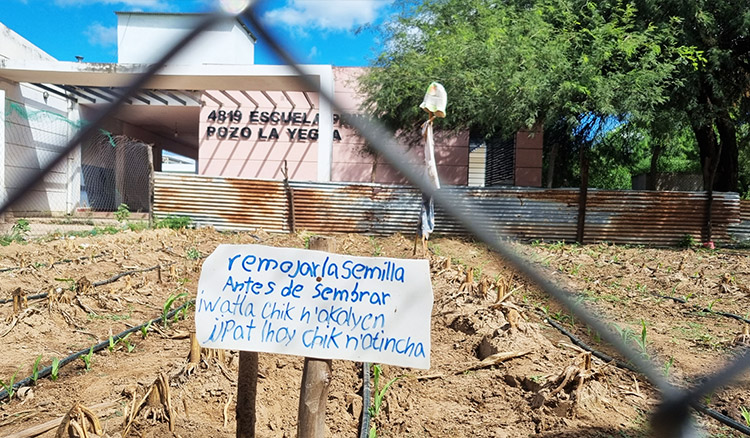 4819 ESCUELA
POZO LA YEGUA
remojar la Semilla
Antes de Sembrar
iwatla chik n'okalyen'
j)Pat lhoy chik n'otincha